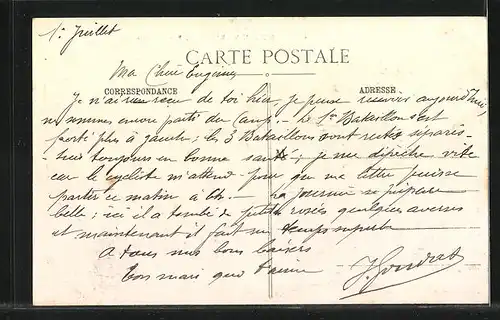 1er Juillet
CARTE POSTALE
Ma Chère Eugénie
CORRESPONDANCE
ADRESSE
Je n'ai rien reçu de toi hier, je pense recevoir aujourd'hui,
ns sommes encore parti du Camp. Le 1er Bataillon s'est
porté plus à gauche; les 3 Bataillons sont restés séparés
suis toujours en bonne santé; je me dépêche vite
car le cycliste m'attend pour que ma lettre puisse
partir ce matin à 6h. La journée se prépare
belle; ici il a tombé de petites rosées quelques averses
et maintenant il fait un temps superbe
A tous mes bons baisers
Ton mari qui t'aime